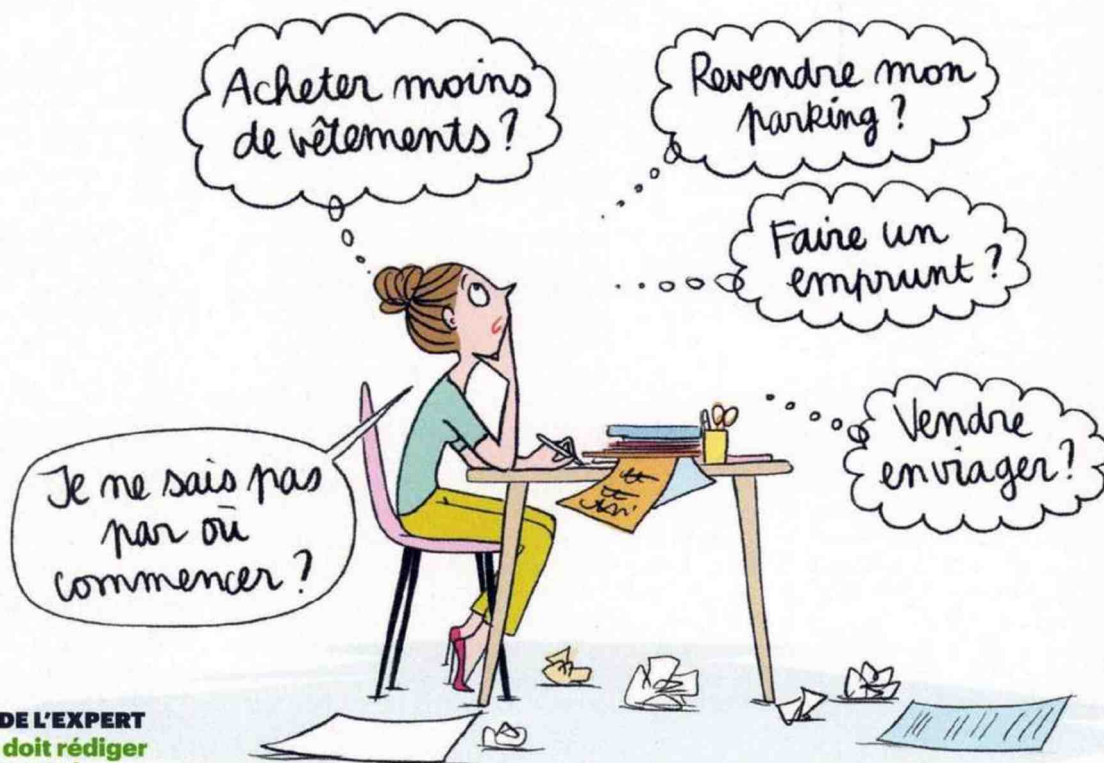 Acheter moins
de vêtements ?
Revendre mon
parking ?
Faire un
emprunt ?
Vendre
en viager ?
Je ne sais pas
par où
commencer ?
DE L'EXPERT
doit rédiger